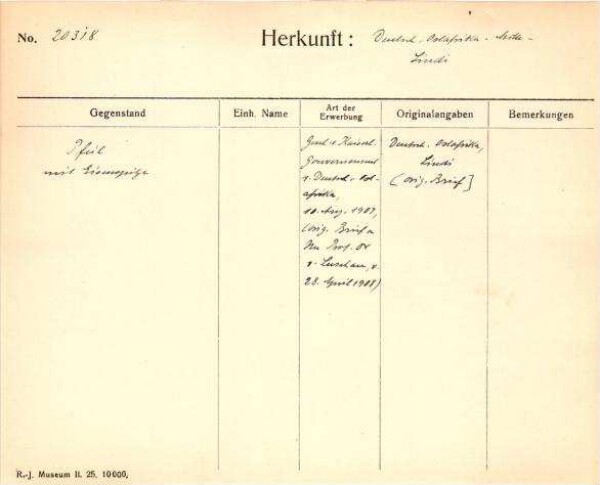 No. 20318 Herkunft: Deutsch-Ostafrika -
Lindi
Gegenstand Einh. Name Art der Erwerbung Originalangaben Bemerkungen
Pfeil
mit Eisenspitze
Gesch. v. Kaiserl.
Gouvernement
v. Deutsch-Ost-
afrika,
10. Aug. 1907,
(orig. Brief v.
Hn Prof. Dr
v. Luschan, v.
28. April 1908)
Deutsch-Ostafrika,
Lindi
(orig. Brief)
R.-J. Museum II. 25. 10000,